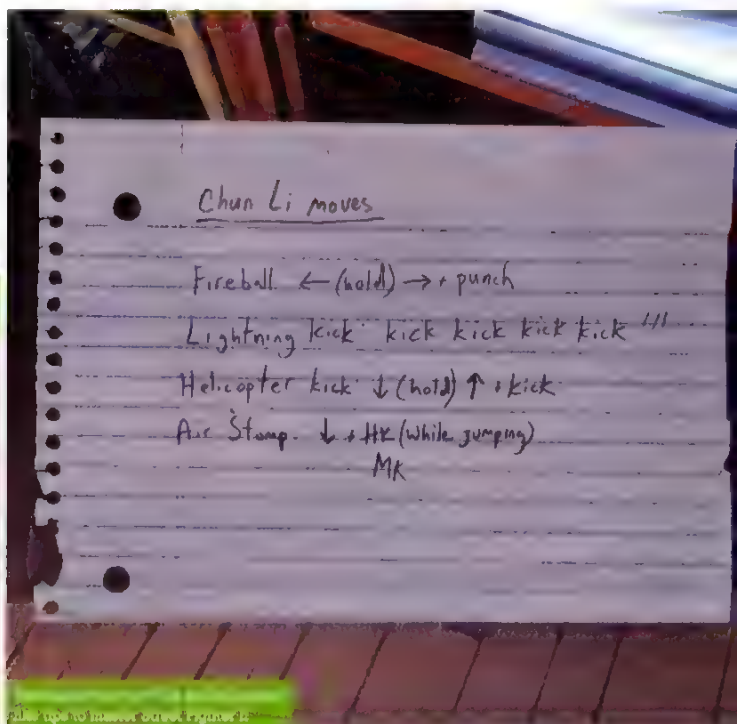 Chun Li moves
Fireball ← (hold) → + punch
Lightning kick kick kick kick kick !!!
Helicopter kick ↓ (hold) ↑ + kick
Air Stomp ↓ + HK (while jumping)
MK